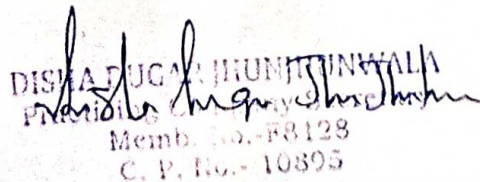 DISHA DUGAR JHUNJHUNWALA
Practising Company Secretary
Memb. No.-F8128
C. P. No.- 10895